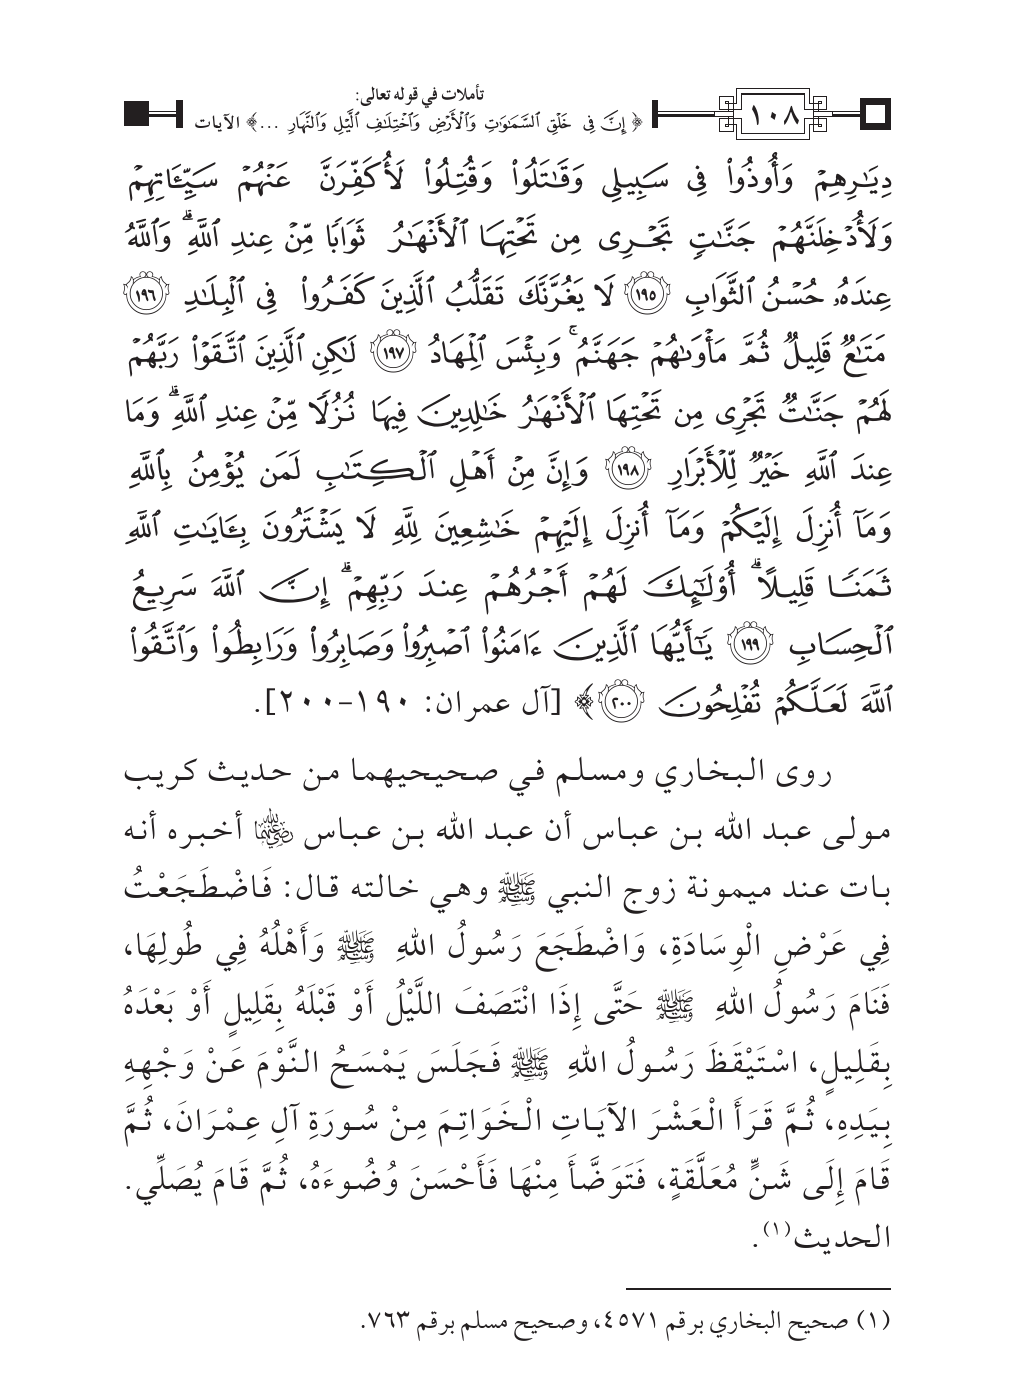 ١٠٨
تأملات في قوله تعالى:
﴿ إِنَّ فِى خَلْقِ ٱلسَّمَٰوَٰتِ وَٱلْأَرْضِ وَٱخْتِلَٰفِ ٱلَّيْلِ وَٱلنَّهَارِ ...﴾ الآيات
دِيَٰرِهِمْ وَأُوذُوا۟ فِى سَبِيلِى وَقَٰتَلُوا۟ وَقُتِلُوا۟ لَأُكَفِّرَنَّ عَنْهُمْ سَيِّـَٔاتِهِمْ
وَلَأُدْخِلَنَّهُمْ جَنَّٰتٍ تَجْرِى مِن تَحْتِهَا ٱلْأَنْهَٰرُ ثَوَابًا مِّنْ عِندِ ٱللَّهِ ۗ وَٱللَّهُ
عِندَهُۥ حُسْنُ ٱلثَّوَابِ ١٩٥ لَا يَغُرَّنَّكَ تَقَلُّبُ ٱلَّذِينَ كَفَرُوا۟ فِى ٱلْبِلَٰدِ ١٩٦
مَتَٰعٌ قَلِيلٌ ثُمَّ مَأْوَىٰهُمْ جَهَنَّمُ ۚ وَبِئْسَ ٱلْمِهَادُ ١٩٧ لَٰكِنِ ٱلَّذِينَ ٱتَّقَوْا۟ رَبَّهُمْ
لَهُمْ جَنَّٰتٌ تَجْرِى مِن تَحْتِهَا ٱلْأَنْهَٰرُ خَٰلِدِينَ فِيهَا نُزُلًا مِّنْ عِندِ ٱللَّهِ ۗ وَمَا
عِندَ ٱللَّهِ خَيْرٌ لِّلْأَبْرَارِ ١٩٨ وَإِنَّ مِنْ أَهْلِ ٱلْكِتَٰبِ لَمَن يُؤْمِنُ بِٱللَّهِ
وَمَآ أُنزِلَ إِلَيْكُمْ وَمَآ أُنزِلَ إِلَيْهِمْ خَٰشِعِينَ لِلَّهِ لَا يَشْتَرُونَ بِـَٔايَٰتِ ٱللَّهِ
ثَمَنًا قَلِيلًا ۗ أُو۟لَٰٓئِكَ لَهُمْ أَجْرُهُمْ عِندَ رَبِّهِمْ ۗ إِنَّ ٱللَّهَ سَرِيعُ
ٱلْحِسَابِ ١٩٩ يَٰٓأَيُّهَا ٱلَّذِينَ ءَامَنُوا۟ ٱصْبِرُوا۟ وَصَابِرُوا۟ وَرَابِطُوا۟ وَٱتَّقُوا۟
ٱللَّهَ لَعَلَّكُمْ تُفْلِحُونَ ٢٠٠ ﴾ [آل عمران: ١٩٠-٢٠٠].
روى البخاري ومسلم في صحيحيهما من حديث كريب
مولى عبد الله بن عباس أن عبد الله بن عباس رضي الله عنهما أخبره أنه
بات عند ميمونة زوج النبي ﷺ وهي خالته قال: فَاضْطَجَعْتُ
فِي عَرْضِ الْوِسَادَةِ، وَاضْطَجَعَ رَسُولُ اللهِ ﷺ وَأَهْلُهُ فِي طُولِهَا،
فَنَامَ رَسُولُ اللهِ ﷺ حَتَّى إِذَا انْتَصَفَ اللَّيْلُ أَوْ قَبْلَهُ بِقَلِيلٍ أَوْ بَعْدَهُ
بِقَلِيلٍ، اسْتَيْقَظَ رَسُولُ اللهِ ﷺ فَجَلَسَ يَمْسَحُ النَّوْمَ عَنْ وَجْهِهِ
بِيَدِهِ، ثُمَّ قَرَأَ الْعَشْرَ الآيَاتِ الْخَوَاتِمَ مِنْ سُورَةِ آلِ عِمْرَانَ، ثُمَّ
قَامَ إِلَى شَنٍّ مُعَلَّقَةٍ، فَتَوَضَّأَ مِنْهَا فَأَحْسَنَ وُضُوءَهُ، ثُمَّ قَامَ يُصَلِّي.
الحديث(١).
(١) صحيح البخاري برقم ٤٥٧١، وصحيح مسلم برقم ٧٦٣.